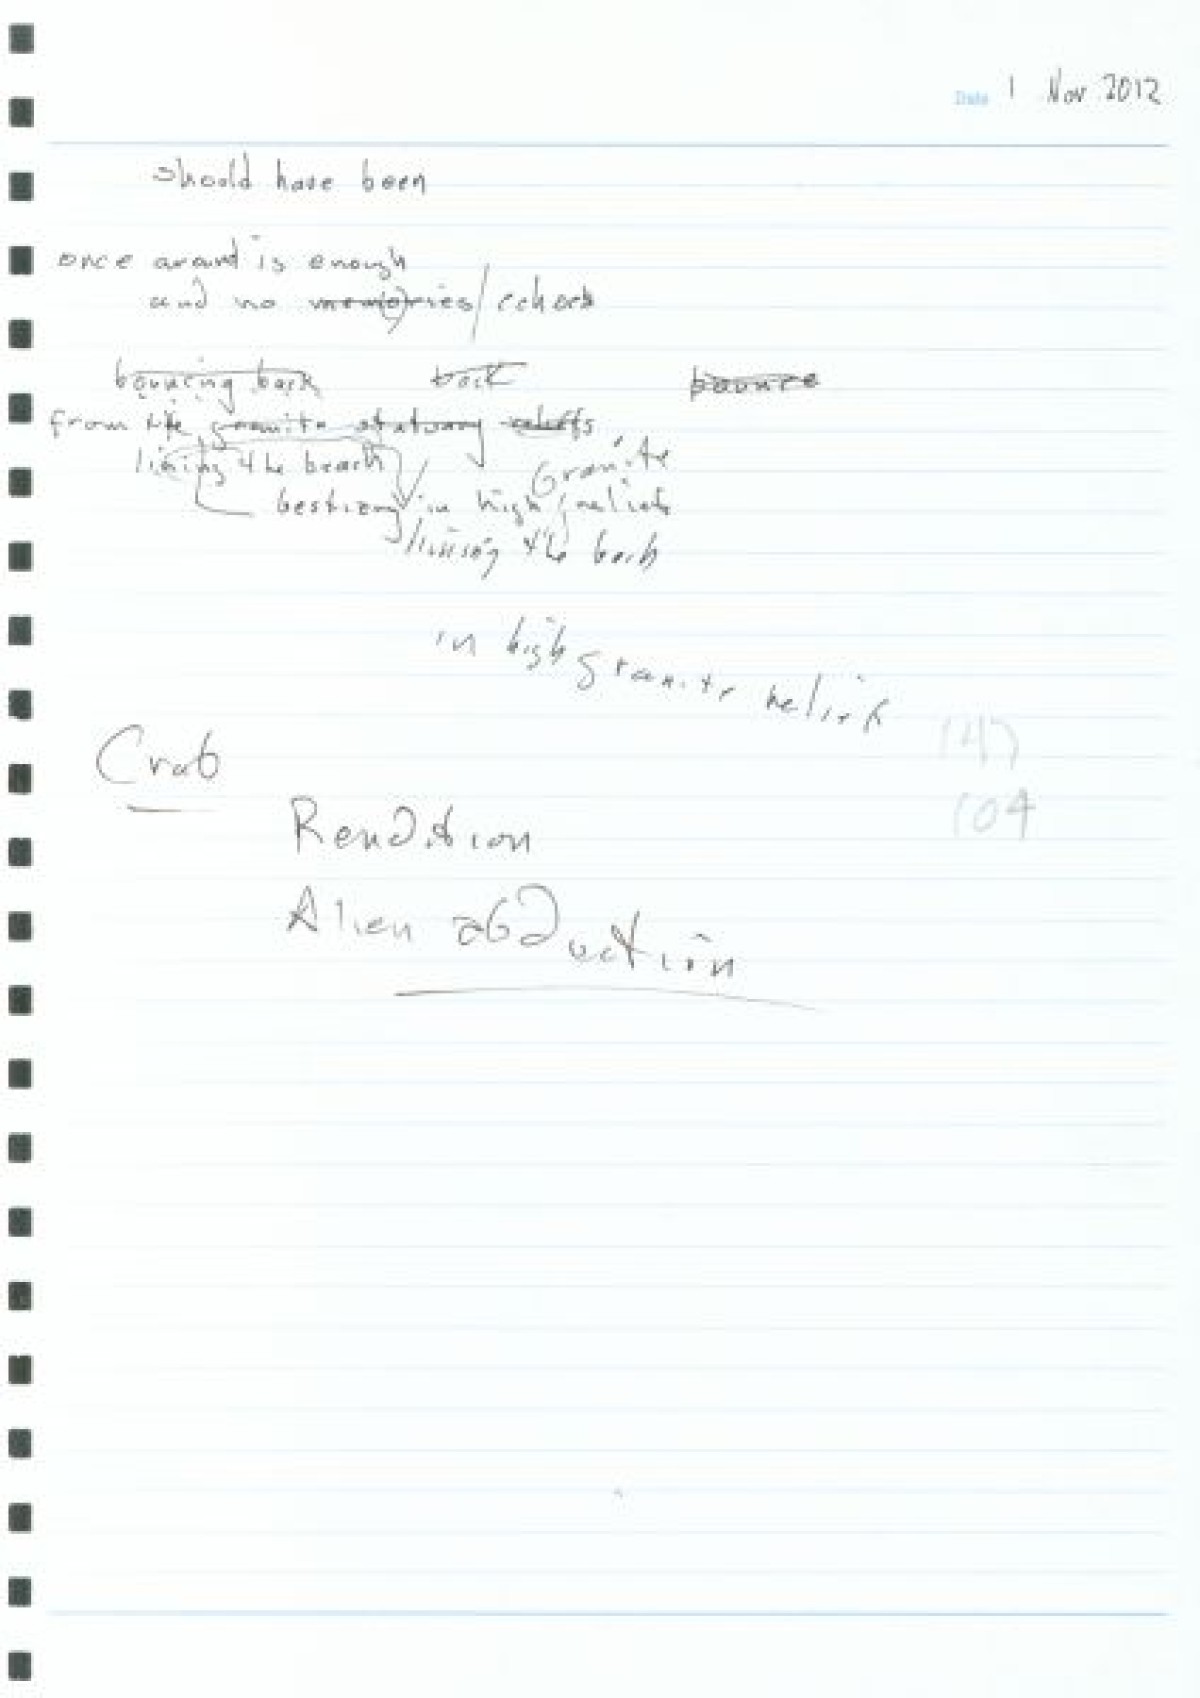 Date 1 Nov 2012
should have been
once around is enough
and no memories/echoes
bouncing back back bounce
from the granite statuary reliefs
lining the beach
Granite
bestiary in high reliefs
lining the bach
in high granite relief
147
Crab
104
Rendition
Alien abduction